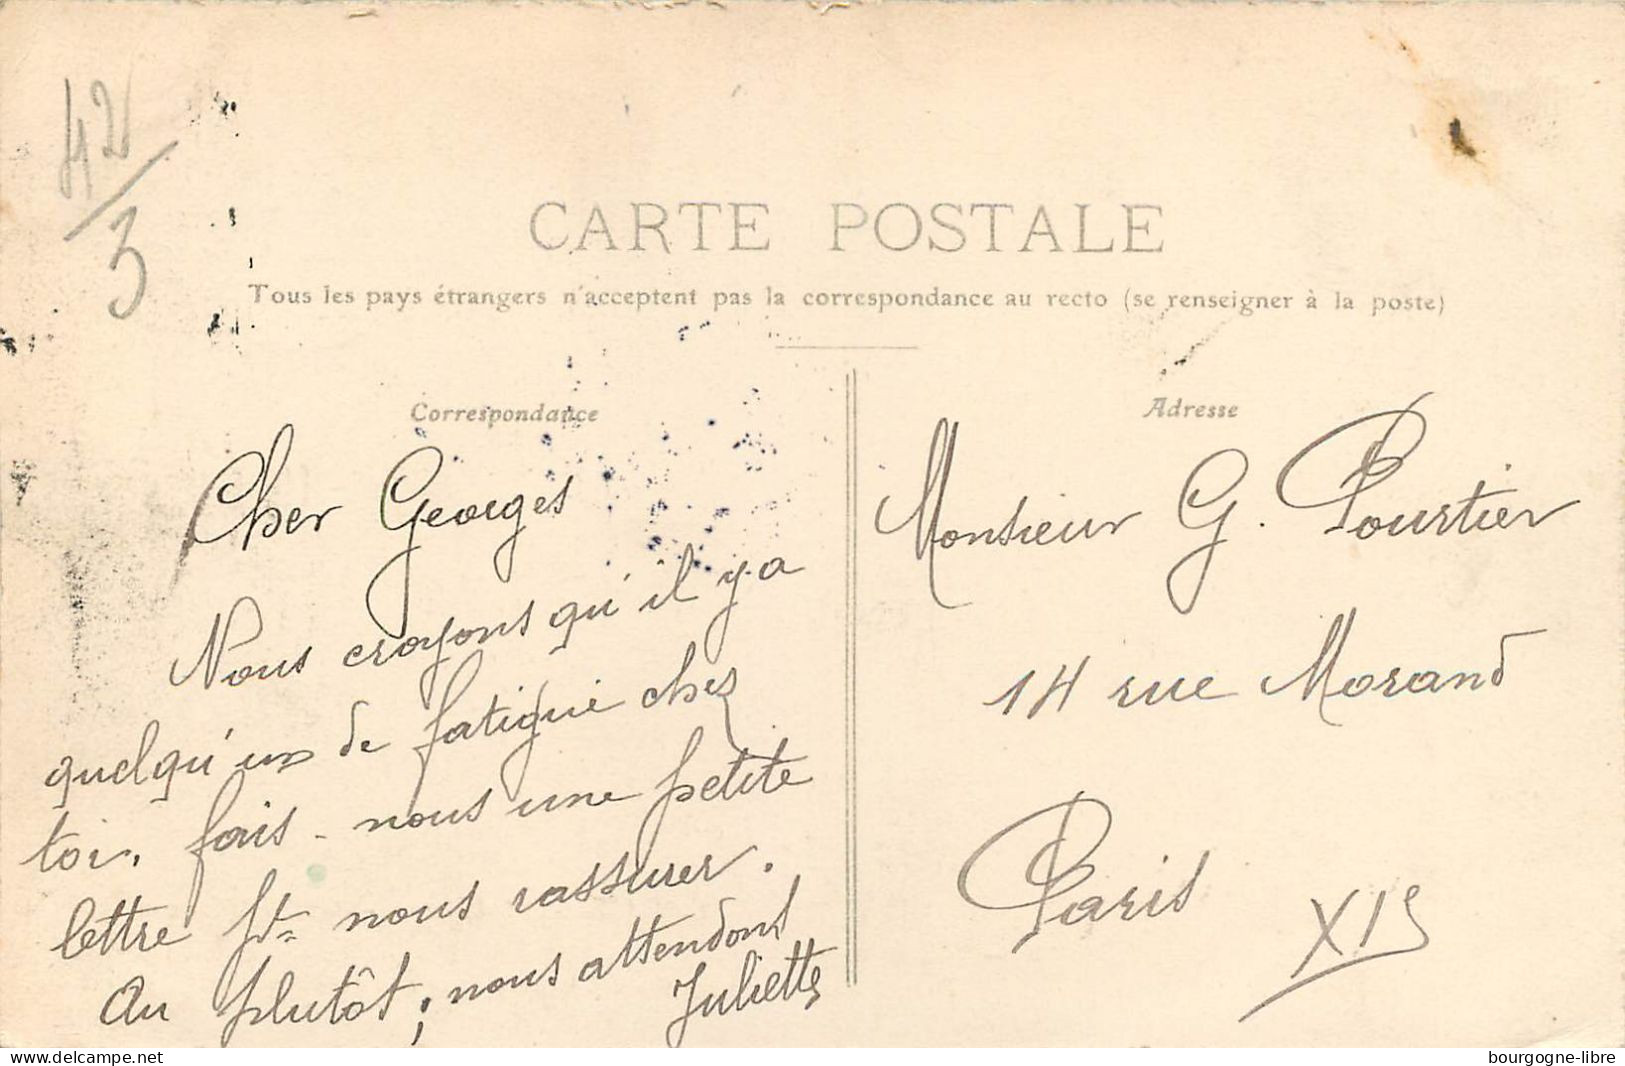 42/3
CARTE POSTALE
Tous les pays étrangers n'acceptent pas la correspondance au recto (se renseigner à la poste)
Correspondance
Cher Georges
Nous croyons qu'il y a
quelqu'un de fatigué chez
toi, fais-nous une petite
lettre pr nous rassurer.
Au plutôt; nous attendons
Juliette
Adresse
Monsieur G. Pourtier
14 rue Morand
Paris
XIe
bourgogne-libre
www.delcampe.net